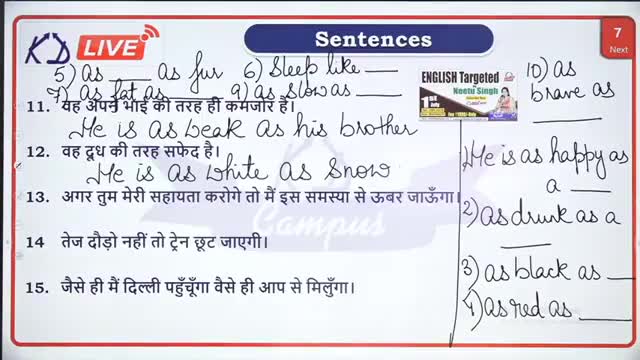 KD LIVE
Sentences
7
Next
5) as ___ as fur 6) Sleep like ___
7) as fat as ___ 9) as slow as ___
10) as
brave as
___
ENGLISH Targeted
Neetu Singh
11. वह अपने भाई की तरह ही कमजोर है।
He is as beak as his brother
12. वह दूध की तरह सफेद है।
He is as white as snow
13. अगर तुम मेरी सहायता करोगे तो मैं इस समस्या से ऊबर जाऊँगा।
14 तेज दौड़ो नहीं तो ट्रेन छूट जाएगी।
15. जैसे ही मैं दिल्ली पहुँचूँगा वैसे ही आप से मिलुँगा।
Campus
He is as happy as
a ___
2) as drunk as a
___
3) as black as ___
4) as red as ___